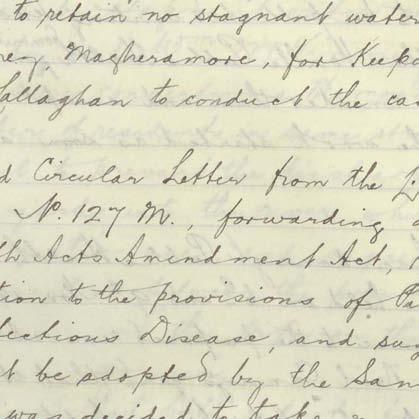 to retain no stagnant water
ney, Magheramore, for Keepi
Callaghan to conduct the ca
d Circular Letter from the L
No. 127 M., forwarding a
th Acts Amendment Act, 1
tion to the provisions of Pa
fectious Disease, and sug
t be adopted by the San
was decided to take